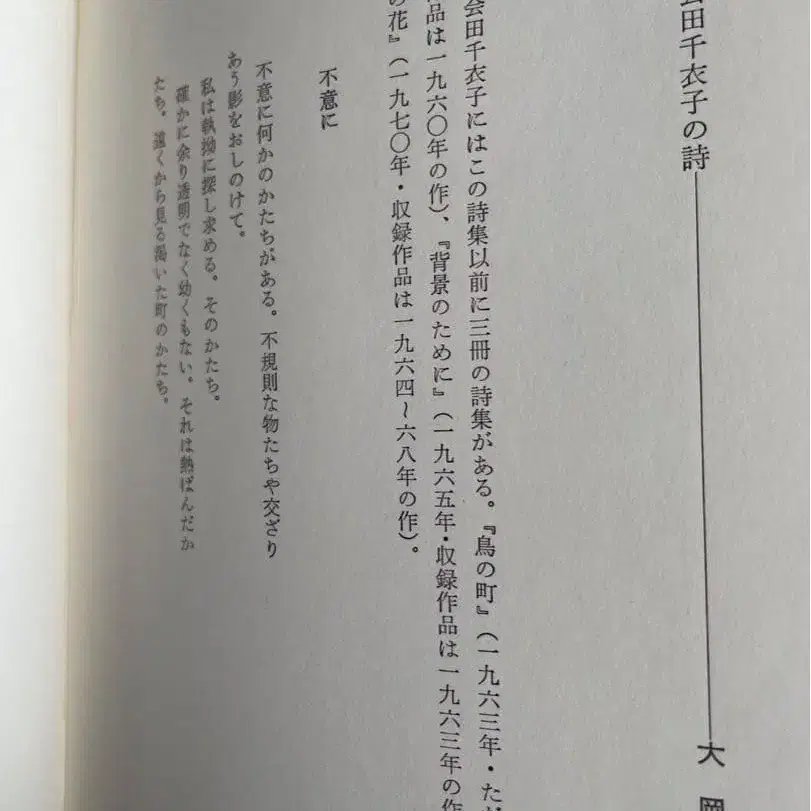 会田千衣子の詩――大岡
会田千衣子にはこの詩集以前に三冊の詩集がある。『鳥の町』(一九六三年・ただ
作品は一九六〇年の作)、『背景のために』(一九六五年・収録作品は一九六三年の作
の花』(一九七〇年・収録作品は一九六四~六八年の作)。
不意に
不意に何かのかたちがある。不規則な物たちや交ざり
あう影をおしのけて。
私は執拗に探し求める。そのかたち。
確かに余り透明でなく幼くもない。それは熱ばんだか
たち。遠くから見る渇いた町のかたち。